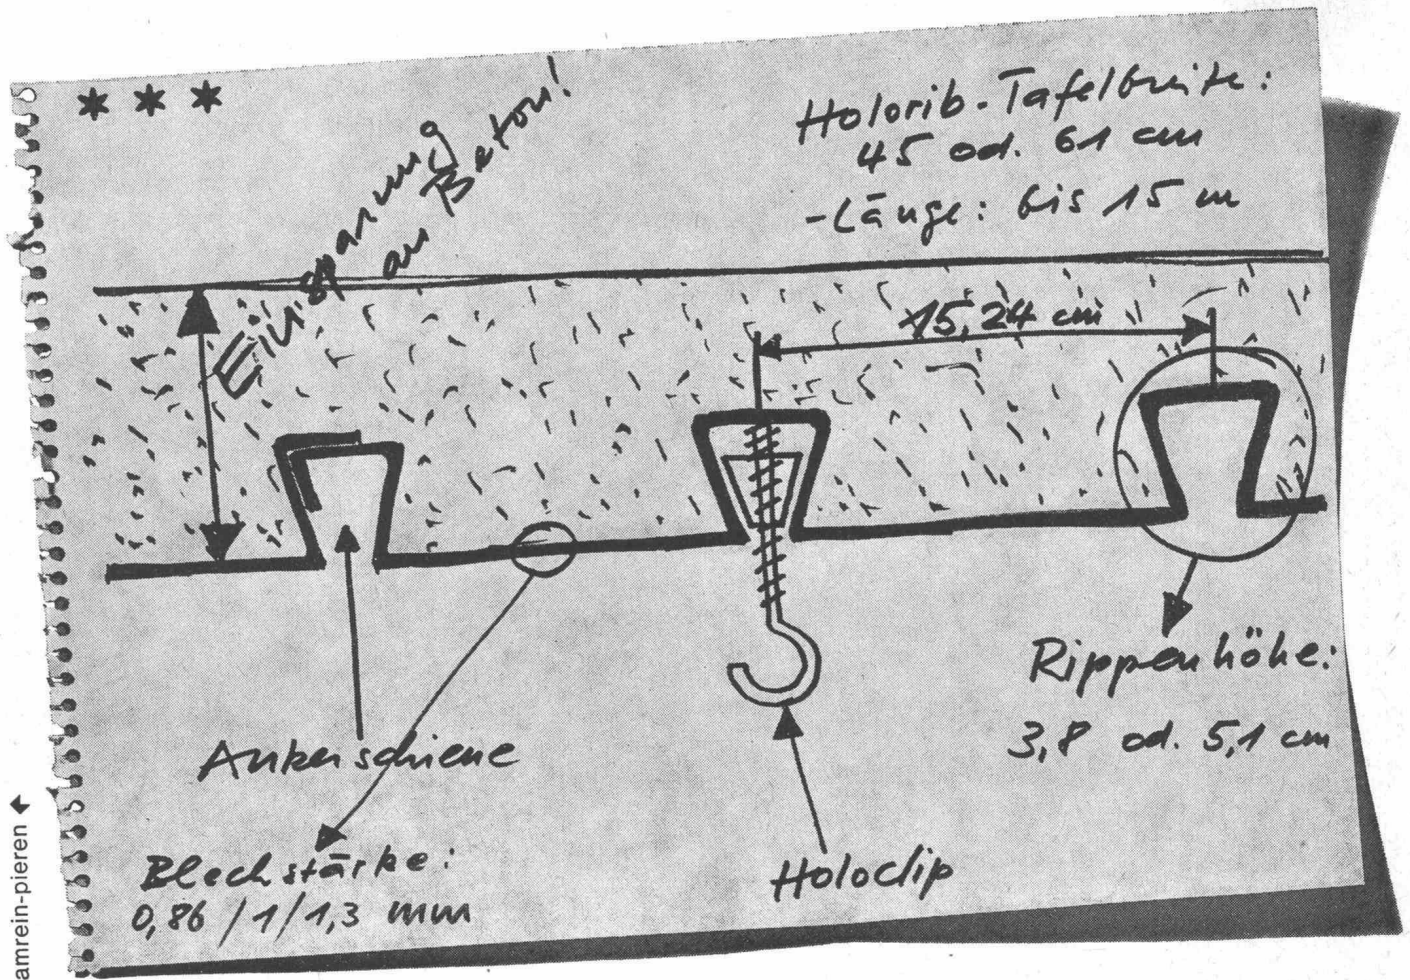 * * *
Einsparung
an Beton!
Holorib-Tafelbreite:
45 od. 61 cm
-Länge: bis 15 m
15,24 cm
Rippenhöhe:
3,8 od. 5,1 cm
Ankerschiene
Holoclip
Blechstärke:
0,86/1/1,3 mm
amrein-pieren